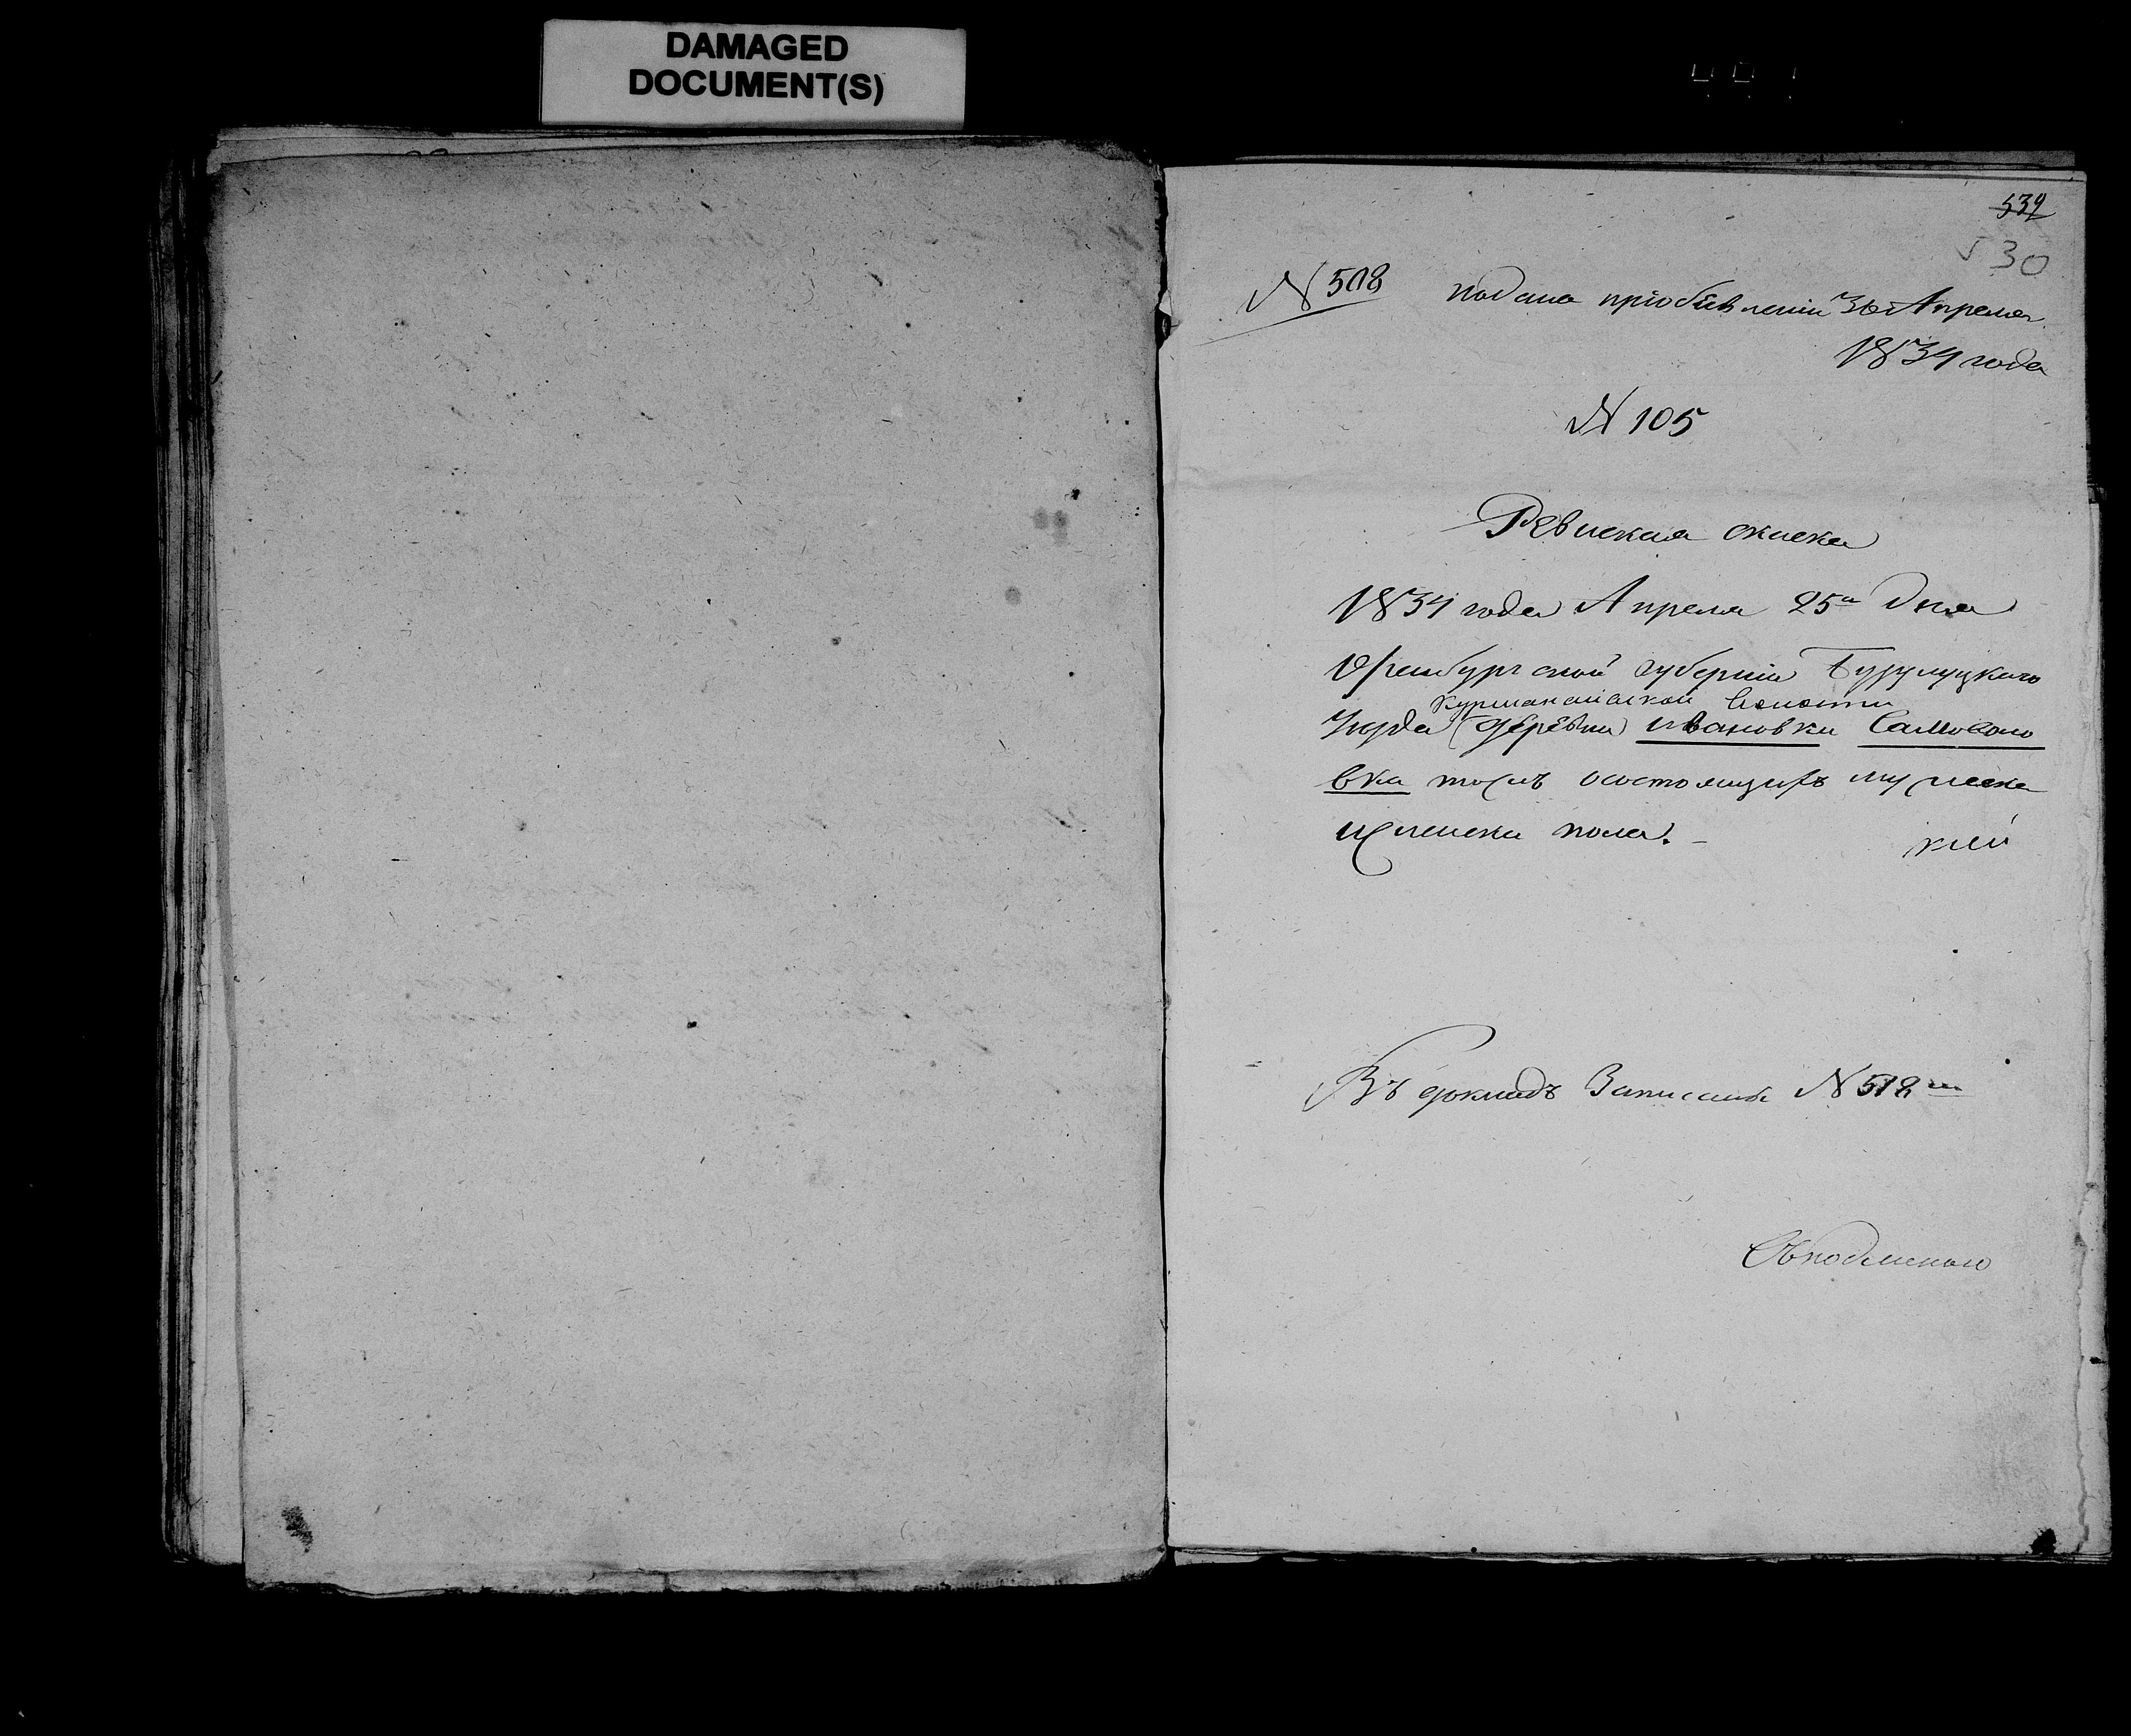 DAMAGED
DOCUMENT(S)
539
530
N 508 подана приобявлении 30 Апреля
1834 года
N 105
Ревиская скаска
1834 года Апреля 25а Дня
Оренбургской губернии Бузулуцкаго
Курманаивской волости
Уезда деревни Ивановки Самовольо
вка тожъ осостоящихъ мужеска
ижениска пола.
Въ докладъ Записана N 518